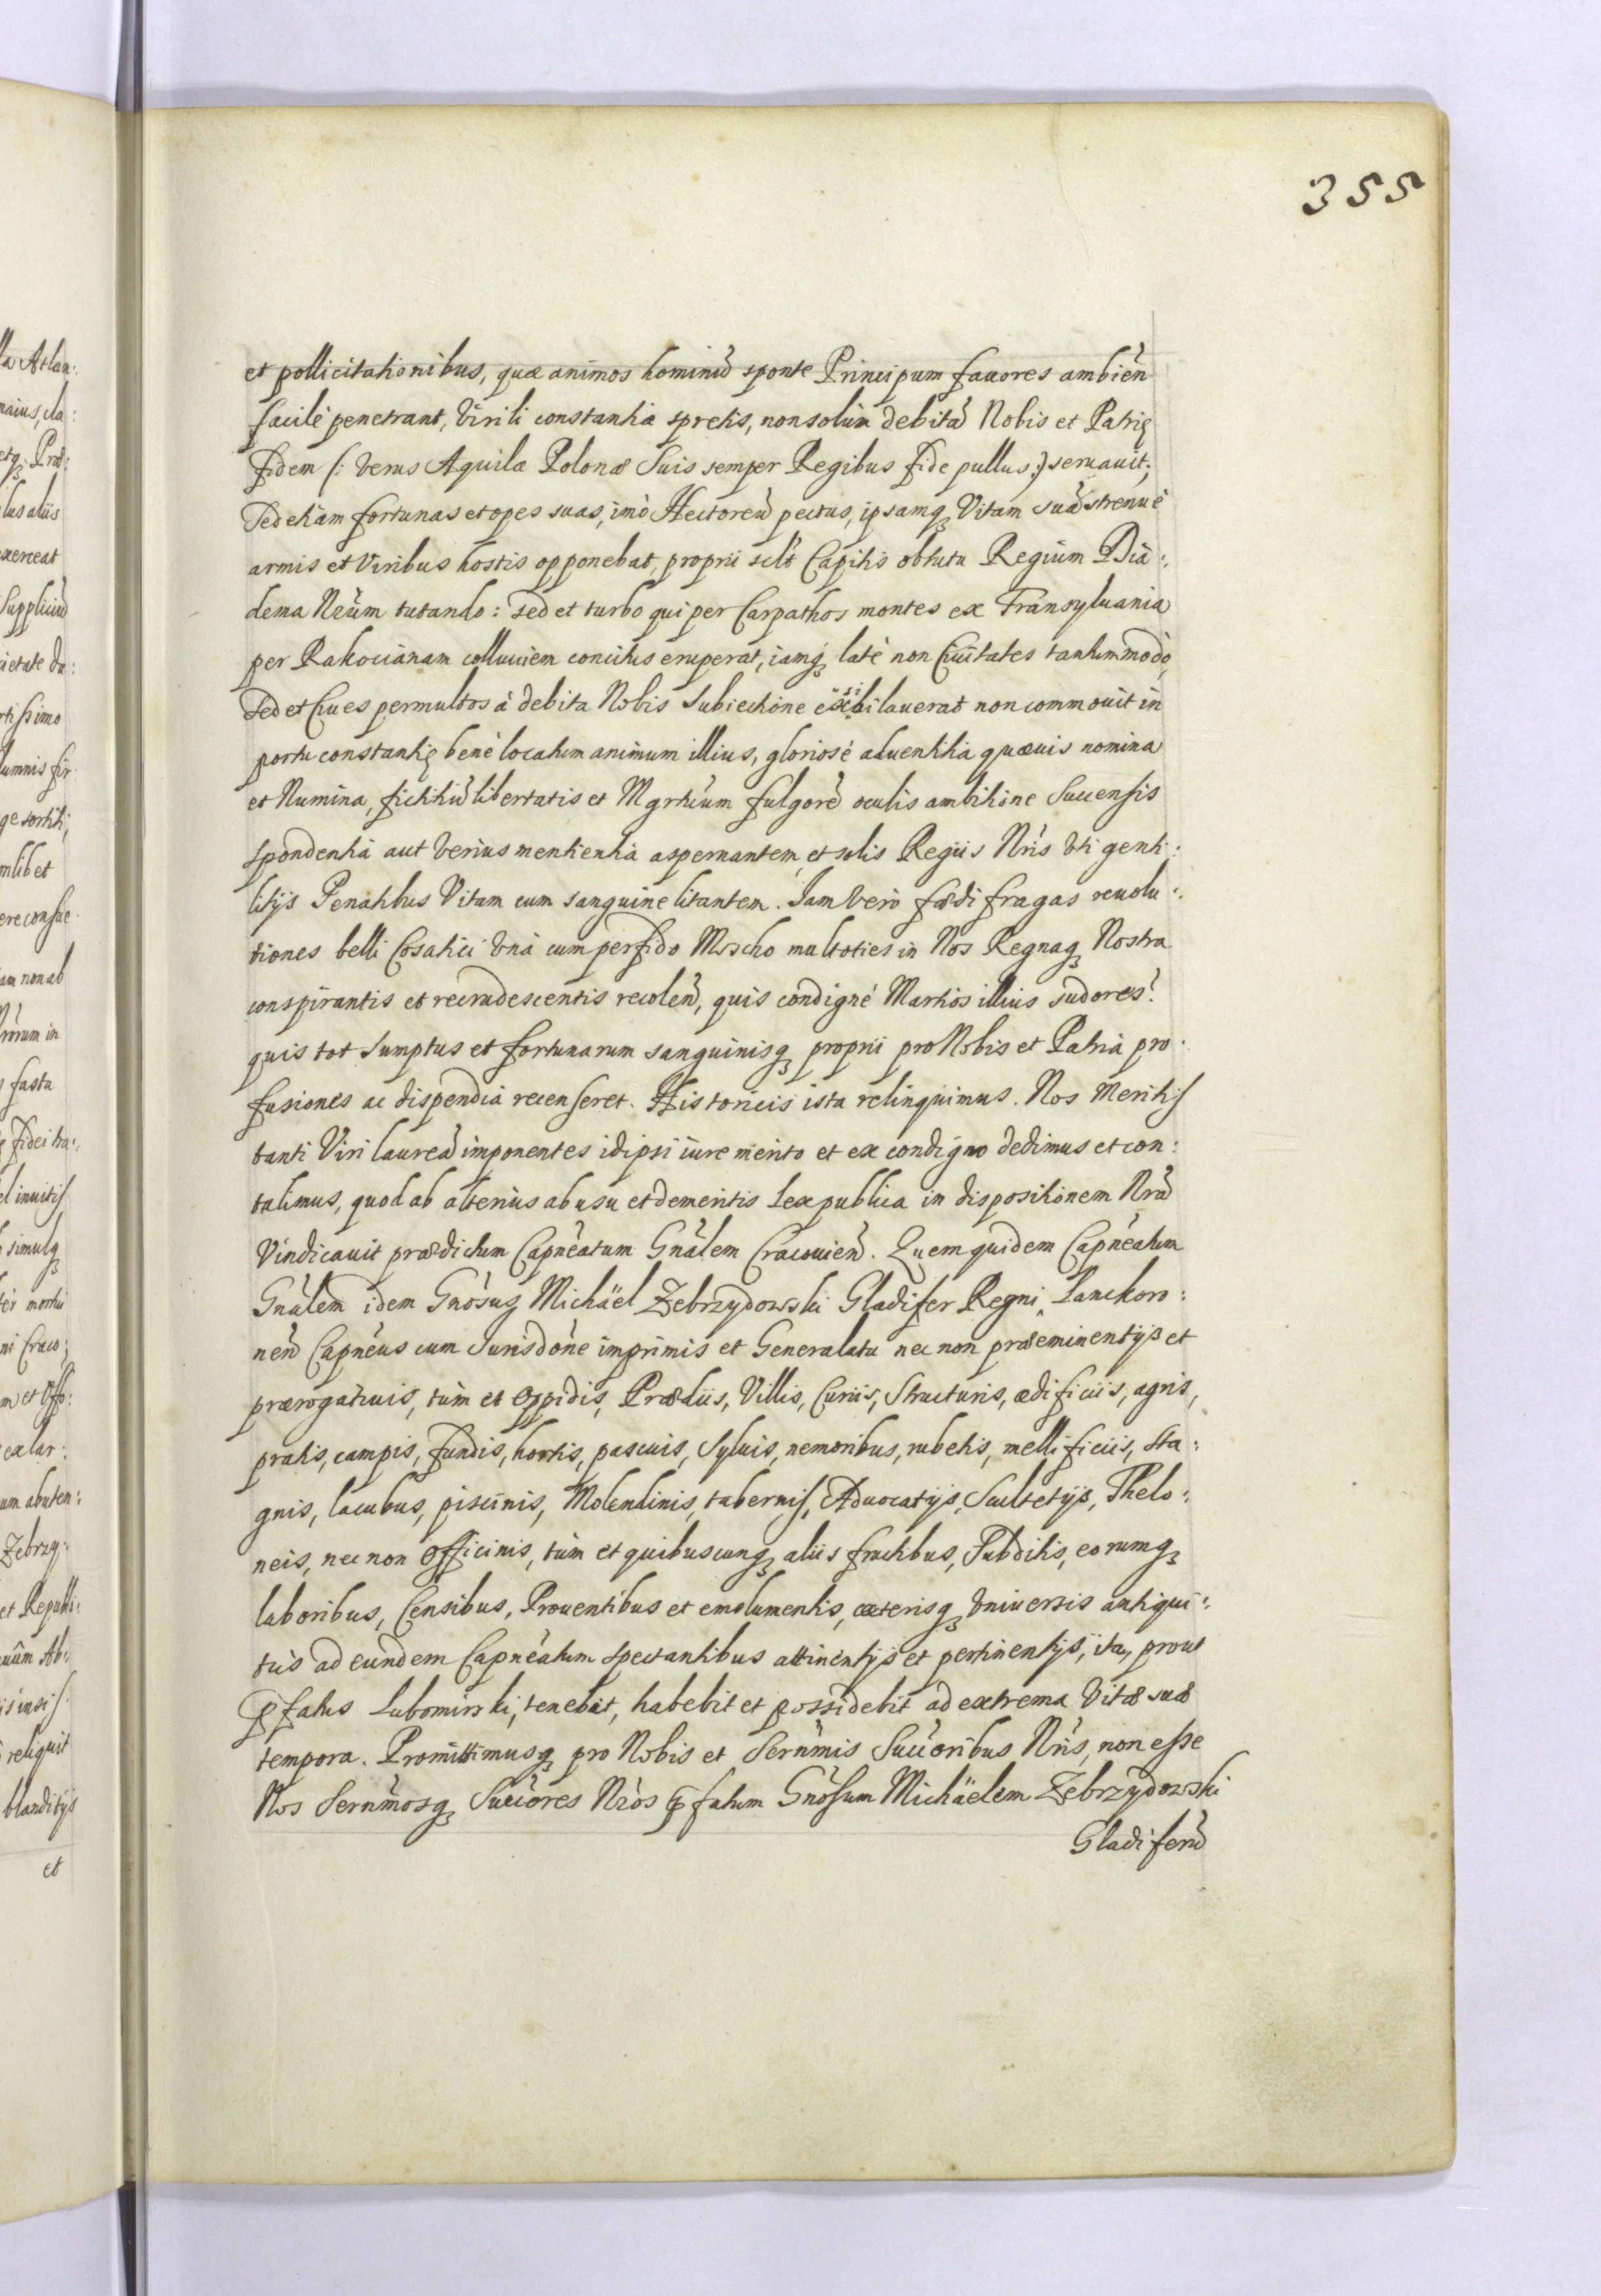 355
et pollicitationibus, quæ animos hominũ sponte Principum fauores ambien̄
facilè penetrant, Virili constantia spretis, non solùm debitã Nobis et Patrię
fidem (: verus Aquilæ Polonæ Suis semper Regibus fide pullus :) seruauit;
Sed etiam fortunas et opes suas, imò Hectoreũ pectus, ipsamq₃ Vitam suã strenuè
armis et Viribus hostis opponebat, proprii scilt Capitis obtutu Regium Dia:
dema Nr̃um tutando: sed et turbo qui per Carpathos montes ex Transyluania
per Rakocianam colluuiem concitus eruperat, iamq₃ latè non Ciuitates tantummodò,
Sed et Ciues permultos à debita Nobis Subiectione exsibilauerat non commouit in
portu constantię benè locatum animum illius, gloriosè aduentitia quæuis nomina
et Numina, fictitiũ libertatis et Mgrtũum fulgorẽ oculis ambitione Succensis
spondentia aut verius mentientia aspernantem, et solis Regiis Nr̃is vti genti:
litijs Penatibus Vitam cum sanguine litantem. Iam vero fædifragas reuolu:
tiones belli Cosatici vnà cum perfido Moscho multoties in Nos Regnaq₃ Nostra
conspirantis et recrudescentis recolen̄, quis condignè Martios illius sudores?
quis tot sumptus et fortunarum sanguinisq₃ proprii pro Nobis et Patria pro:
fusiones ac dispendia recenseret. Historicis ista relinquimus. Nos Meritis
tanti Viri laureã imponentes id ipsi iure merito et ex condigno dedimus et con:
tulimus, quod ab alterius abusu et demeritis Lex publica in dispositionem Nr̃ã
Vindicauit prædictum Capñeatum Gñalem Cracouien̄. Quem quidem Capñeatum
Gñalem idem Gñosus Michäel Zebrzydowski Gladifer Regni, Lanckoro:
nen̄ Capñeus cum Jurisdõne imprimis et Generalatu nec non præeminentijs et
prærogatiuis, tùm et Oppidis, Prædiis, Villis, Curiis, Structuris, ædificiis, agris,
pratis, campis, fundis, hortis, pascuis, Syluis, nemoribus, rubetis, mellificiis, sta:
gnis, lacubus, piscinis, Molendinis, tabernis, Aduocatijs, Scultetijs, Thelo:
neis, nec non Officinis, tùm et quibuscunq₃ aliis fructibus, Subditis, eorumq₃
laboribus, Censibus, Prouentibus et emolumentis, cæterisq₃ vniuersis antiqui:
tùs ad eundem Capñeatum spectantibus attinentijs et pertinentijs, ita, prout
p̱fatus Lubomirski, tenebat, habebit et possidebit ad extrema Vitæ suæ
tempora. Promittimusq₃ pro Nobis et Serñmis Succ̃oribus Nr̃is, non esse
Nos Serñmosq₃ Succ̃ores Nr̃os p̱fatum Gñosum Michäelem Zebrzydowski
Gladiferũ